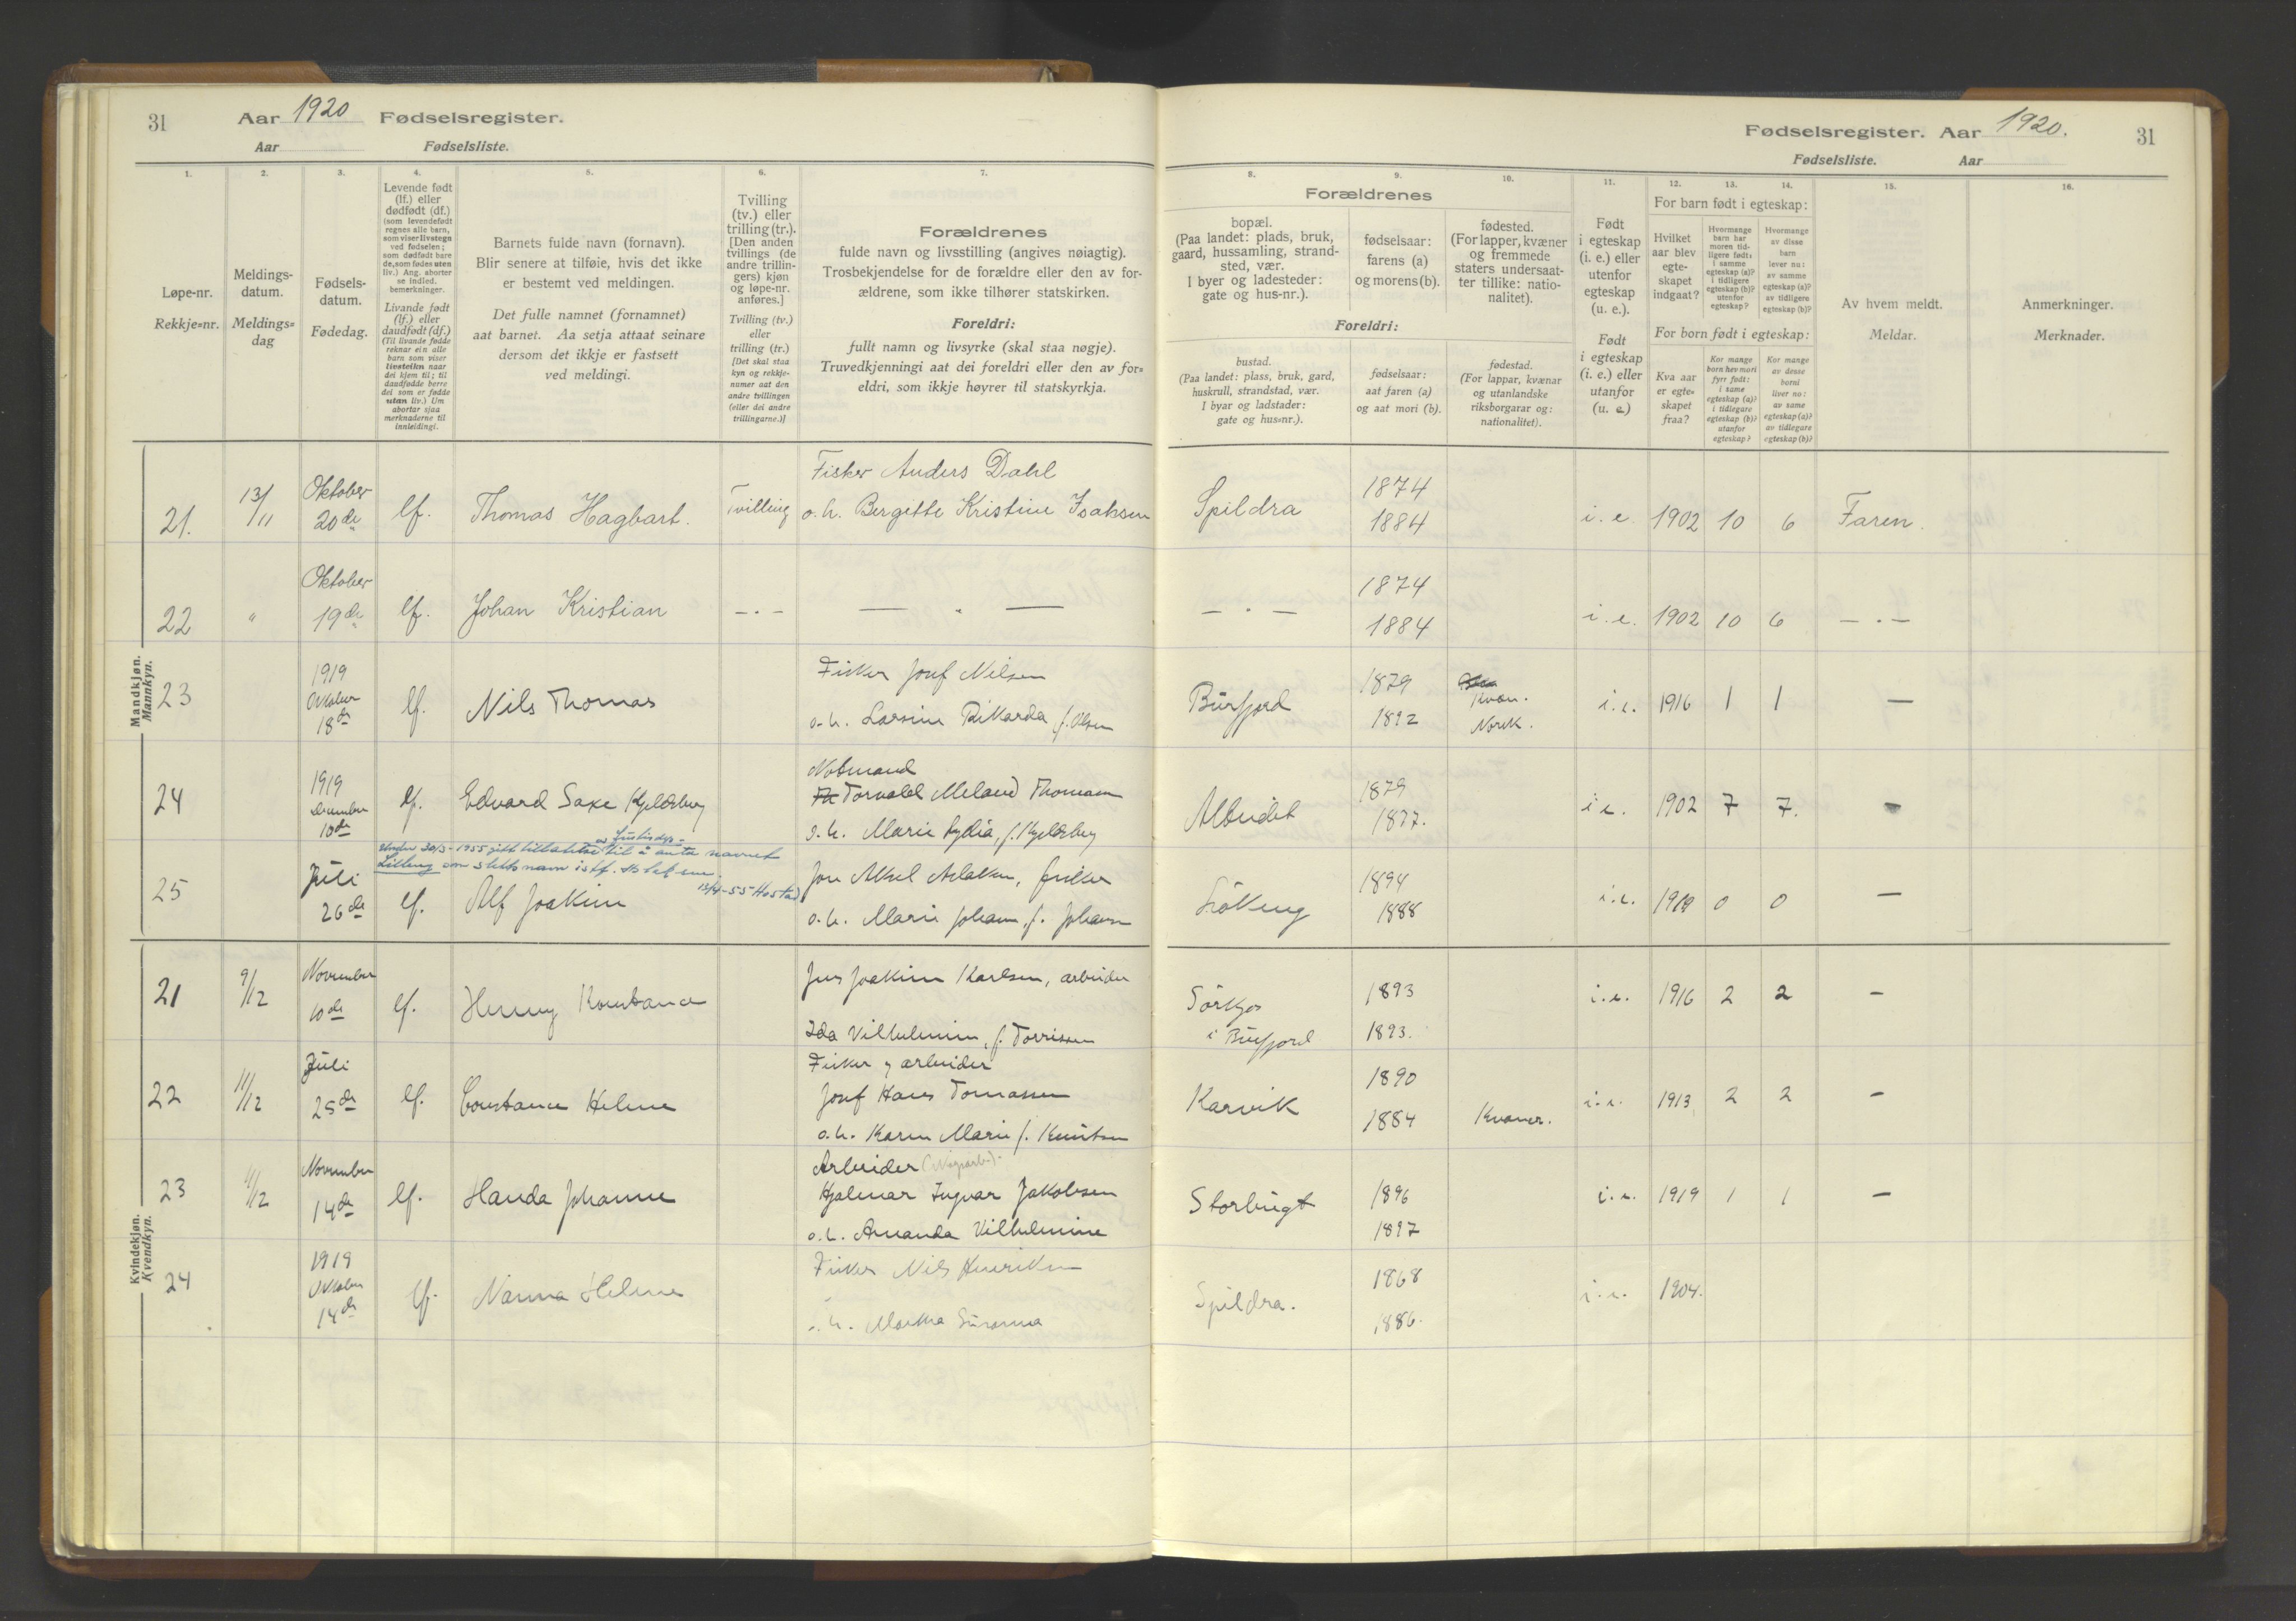 31
Aar 1920 Fødselsregister.
Aar Fødselsliste.
1. 2. 3. 4. 5. 6. 7.
Løpe-nr.
Rekkje=nr.
Meldings-
datum.
Meldings=
dag
Fødsels-
datum.
Fødedag.
Levende født
(lf.) eller
dødfødt (df.)
(som levendefødt
regnes alle barn,
som viser livstegn
ved fødselen;
som dødfødt bare
de, som fødes uten
liv.) Ang. aborter
se indled.
bemerkninger.
Livande født
(lf.) eller
daudfødt (df.)
(Til livande fødde
reknar ein alle
barn som viser
livsteikn naar
dei kjem til; til
daudfødde berre
dei som er fødde
utan liv.) Um
abortar sjaa
merknaderne til
innleidingi.
Barnets fulde navn (fornavn).
Blir senere at tilføie, hvis det ikke
er bestemt ved meldingen.
Det fulle namnet (fornamnet)
aat barnet. Aa setja attaat seinare
dersom det ikkje er fastsett
ved meldingi.
Tvilling
(tv.) eller
trilling (tr.).
[Den anden
tvillings (de
andre trillin-
gers) kjøn
og løpe-nr.
anføres.]
Tvilling (tv.)
eller
trilling (tr.)
[Det skal staa
kyn og rekkje-
numer aat den
andre tvillingen
(eller dei andre
trillingarne.)]
Forældrenes
fulde navn og livsstilling (angives nøiagtig).
Trosbekjendelse for de forældre eller den av for-
ældrene, som ikke tilhører statskirken.
Foreldri:
fullt namn og livsyrke (skal staa nøgje).
Truvedkjenningi aat dei foreldri eller den av for=
eldri, som ikkje høyrer til statskyrkja.
Mandkjøn.
Mannkyn.
21. 13/11 Oktober 20de lf. Thomas Hagbart. Tvilling
Fisker Anders Dahl
o. h. Bergette Kristine Isaksen
22 " Oktober 19de lf. Johan Kristian — . — — . —
23 1919 Oktober 18de lf. Nils Thomas
Fisker Josef Nilsen
o. h. Larsine Rikarda, f. Olsen
24 1919 December 10de lf. Edvard Saxe Kjeldsberg
Notmand
Torvald Meland Thomasen
o. h. Marie Lydia, f. Kjeldsberg
Under 30/3-1955 gitt tillatelse av Justisdep. til å anta navnet
som slektsnavn istf.
13/4-55 Hostad
25 Juli 26de lf. Alf Joakim
Jon Aksel Aslaksen, fisker
o. h. Marie Johanne, f. Johansen
Kvindekjøn.
Kvendkyn.
21 9/12 November 10de lf. Henny Konstance
Jens Joakim Karlsen, arbeider
Ida Vilhelmine, f. Torrissen
22 11/12 Juli 25de lf. Constance Helene
Fisker og arbeider
Josef Hans Tomassen
o. h. Karen Marie f. Knutsen
23 11/12 November 14de lf. Handa Johanne
Arbeider
Hjalmar Ingvar Jakobsen
o. h. Amanda Vilhelmine
24 1919 Oktober 14de lf. Nanna Helene
Fisker Nils Henriksen
o. h. Marka Susanna
Fødselsregister. Aar 1920. 31
Fødselsliste. Aar
8. 9. 10. 11. 12. 13. 14. 15. 16.
Forældrenes
bopæl.
(Paa landet: plads, bruk,
gaard, hussamling, strand-
sted, vær.
I byer og ladesteder:
gate og hus-nr.).
fødselsaar:
farens (a)
og morens (b).
fødested.
(For lapper, kvæner
og fremmede
staters undersaat-
ter tillike: natio-
nalitet).
Foreldri:
bustad.
(Paa landet: plass, bruk, gard,
huskrull, strandstad, vær.
I byar og ladstader:
gate og hus=nr.).
fødselsaar:
aat faren (a)
og aat mori (b).
fødestad.
(For lappar, kvænar
og utanlandske
riksborgarar og:
nationalitet).
Født
i egteskap
(i. e.) eller
utenfor
egteskap
(u. e.).
Født
i egteskap
(i. e.) eller
utanfor
(u. e.)
For barn født i egteskap:
Hvilket
aar blev
egte-
skapet
indgaat?
Hvormange
barn har
moren tid-
ligere født:
i samme
egteskap (a)?
i tidligere
egteskap (b)?
utenfor
egteskap?
Hvormange
av disse
barn
lever nu:
av samme
egteskap (a)?
av tidligere
egteskap (b)?
For born født i egteskap:
Kva aar
er egte=
skapet
fraa?
Kor mange
born hev mori
fyrr født:
i same
egteskap (a)?
i tidlegare
egteskap (b)?
utanfor
egteskap?
Kor mange
av desse
borni
liver no:
av same
egteskap (a)?
av tidlegare
egteskap (b)?
Av hvem meldt.
Meldar.
Anmerkninger.
Merknader.
Spildra 1874 1884 i. e. 1902 10 6 Faren.
— . — 1874 1884 i. e. 1902 10 6 — . —
Burfjord 1879 1892 Kvæn. Norsk. i. e. 1916 1 1 —
Alteidet 1879 1877. i e. 1902 7 7. -
1894 1888 i. e. 1919 0 0 —
i Burfjord 1893 1893. i. e. 1916 2 2 –
Karvik 1890 1884 Kvæner. i. e. 1913 2 2 –
Storbugt 1896 1897 i. e. 1919 1 1 –
Spildra. 1868 1886. i. e. 1904.